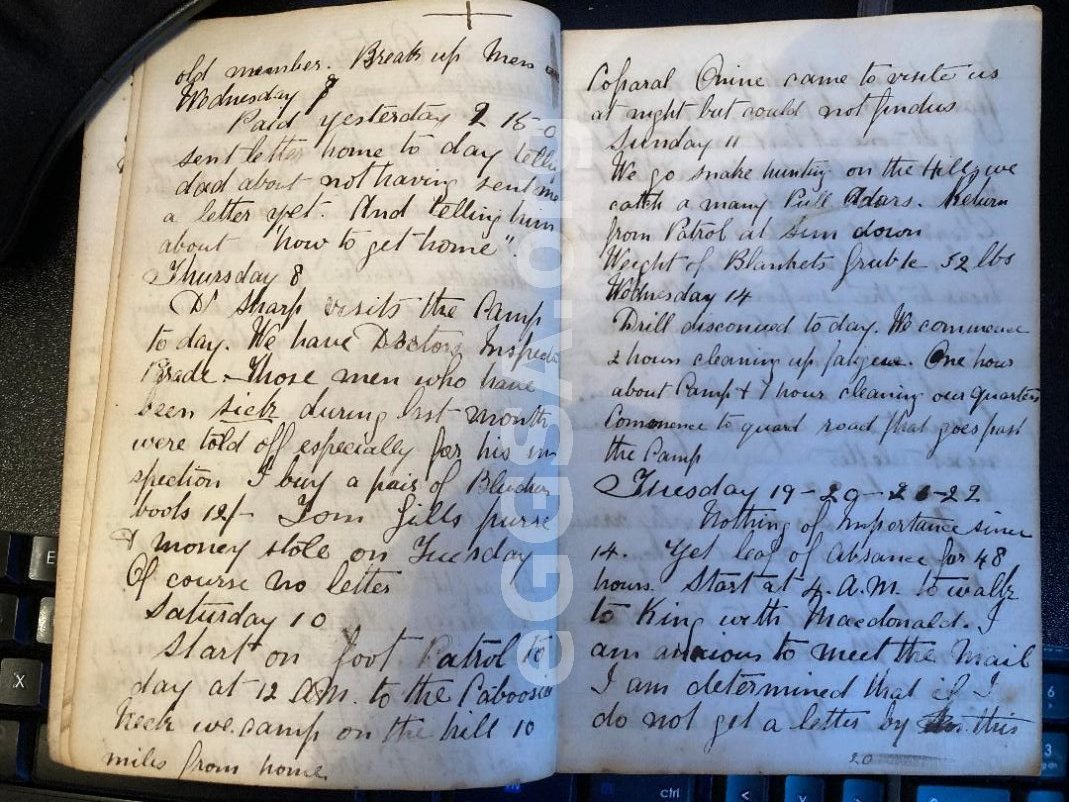 old member. Break up Men
Wednesday 7
Paid yesterday 2 15-0
sent letter home to day tell
dad about not having sent me
a letter yet. And telling him
about "how to get home".
Thursday 8
Dr Sharp visits the Camp
to day. We have Doctors Inspect
Parade - Those men who have
been sick during last month
were told off especially for his in
spection I buy a pair of Blucher
boots 12/- Tom Gills purse
& money stole on Tuesday
Of course no letter
Saturday 10
Start on foot Patrol to
day at 12 A.M. to the
Neck we camp on the hill 10
miles from home
Coparal came to visite us
at night but could not find us
Sunday 11
We go snake hunting on the Hills we
catch a many Puff Adars. Return
from Patrol at Sun down
Weight of Blankets 32 lbs
Wednesday 14
Drill disconued to day. We commence
2 hours cleaning up fatgeue. One hour
about Camp & 1 hour cleaning our Quarters
Commence to guard road that goes past
the Camp
Tuesday 19-20-21-22
Nothing of Importance since
14. Get leaf of absance for 48
hours. Start at 4. A.M. to walk
to King with Macdonald. I
am anxious to meet the Mail
I am determined that if I
do not get a letter by this
20
E
X
ctrl
<
6
3
eGGSA.org